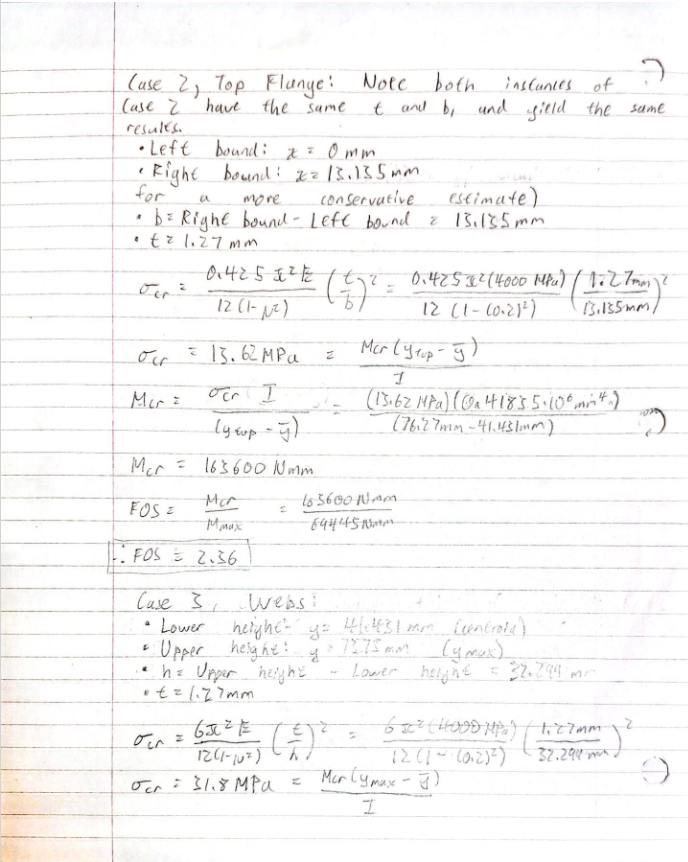 Case 2, Top Flange: Note both instances of
Case 2 have the same t and b, and yield the same
results.
• Left bound: x = 0 mm
• Right bound: x = 13.135 mm
for a more conservative estimate)
• b = Right bound - Left bound = 13.135 mm
• t = 1.27 mm
σcr = 0.425 π² E / 12 (1-μ²) (t/b)² = 0.425 π² (4000 MPa) / 12 (1-(0.2)²) (1.27mm / 13.135mm)²
σcr = 13.62 MPa = Mcr (ytop - ȳ) / I
Mcr = σcr I / (ytop - ȳ) = (13.62 MPa) (0.41835·10⁶ mm⁴) / (76.27mm - 41.431mm)
Mcr = 163600 Nmm
FOS = Mcr / Mmax = 163600 Nmm / 69445 Nmm
∴ FOS = 2.36
Case 3, Webs:
• Lower height: y = 41.431 mm (centroid)
• Upper height: y = mm (ymax)
• h = Upper height - Lower height = 32.299 mm
• t = 1.27mm
σcr = 6π² E / 12(1-μ²) (t/h)² = 6 π² (4000 MPa) / 12 (1-(0.2)²) (1.27mm / 32.299 mm)²
σcr = 31.8 MPa = Mcr (ymax - ȳ) / I